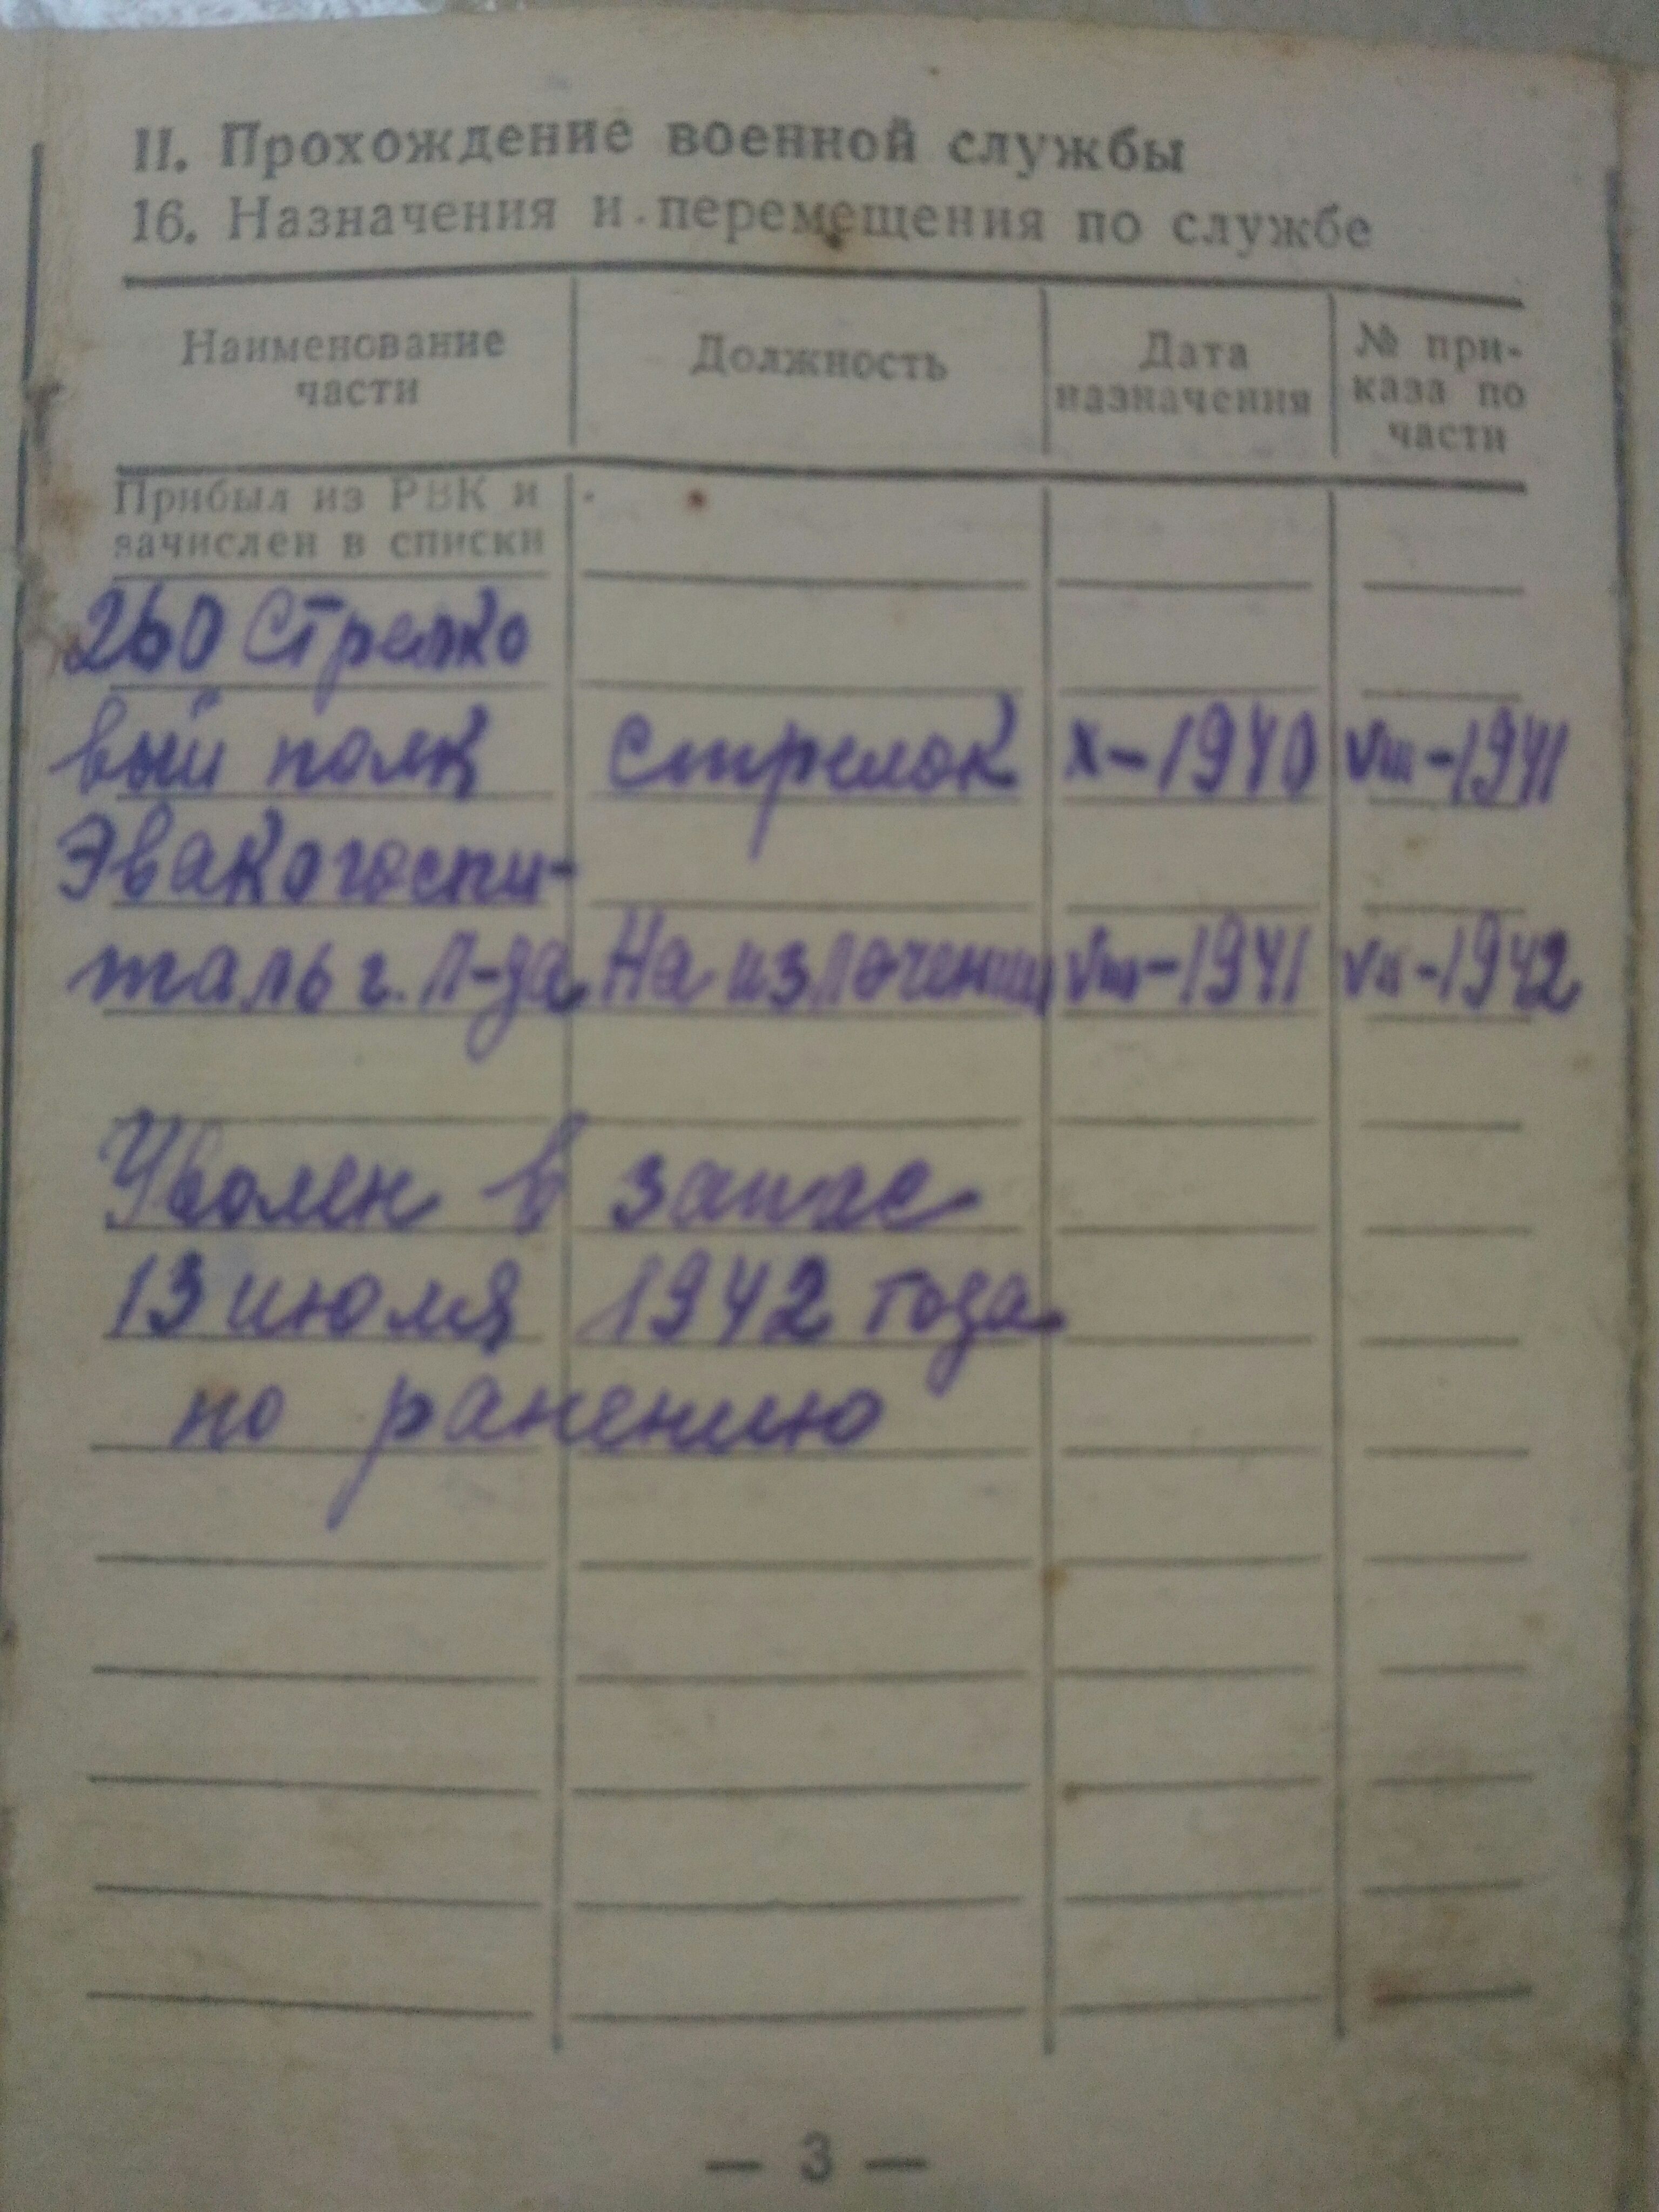 II. Прохождение военной службы
16. Назначения и перемещения по службе
Наименование части Должность Дата назначения № при-каза по части
Прибыл из РВК и
зачислен в списки
260 Стрелко
вый полк стрелок X-1940 VIII-1941
Эвакогоспи-
таль г. Л-да На излечении VIII-1941 VII-1942
Уволен в запас
13 июля 1942 года
по ранению
— 3 —